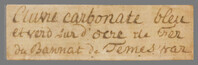 Cuivre carbonaté bleu
et verd sur d'ocre de Fer
du Bannat de Temeswar